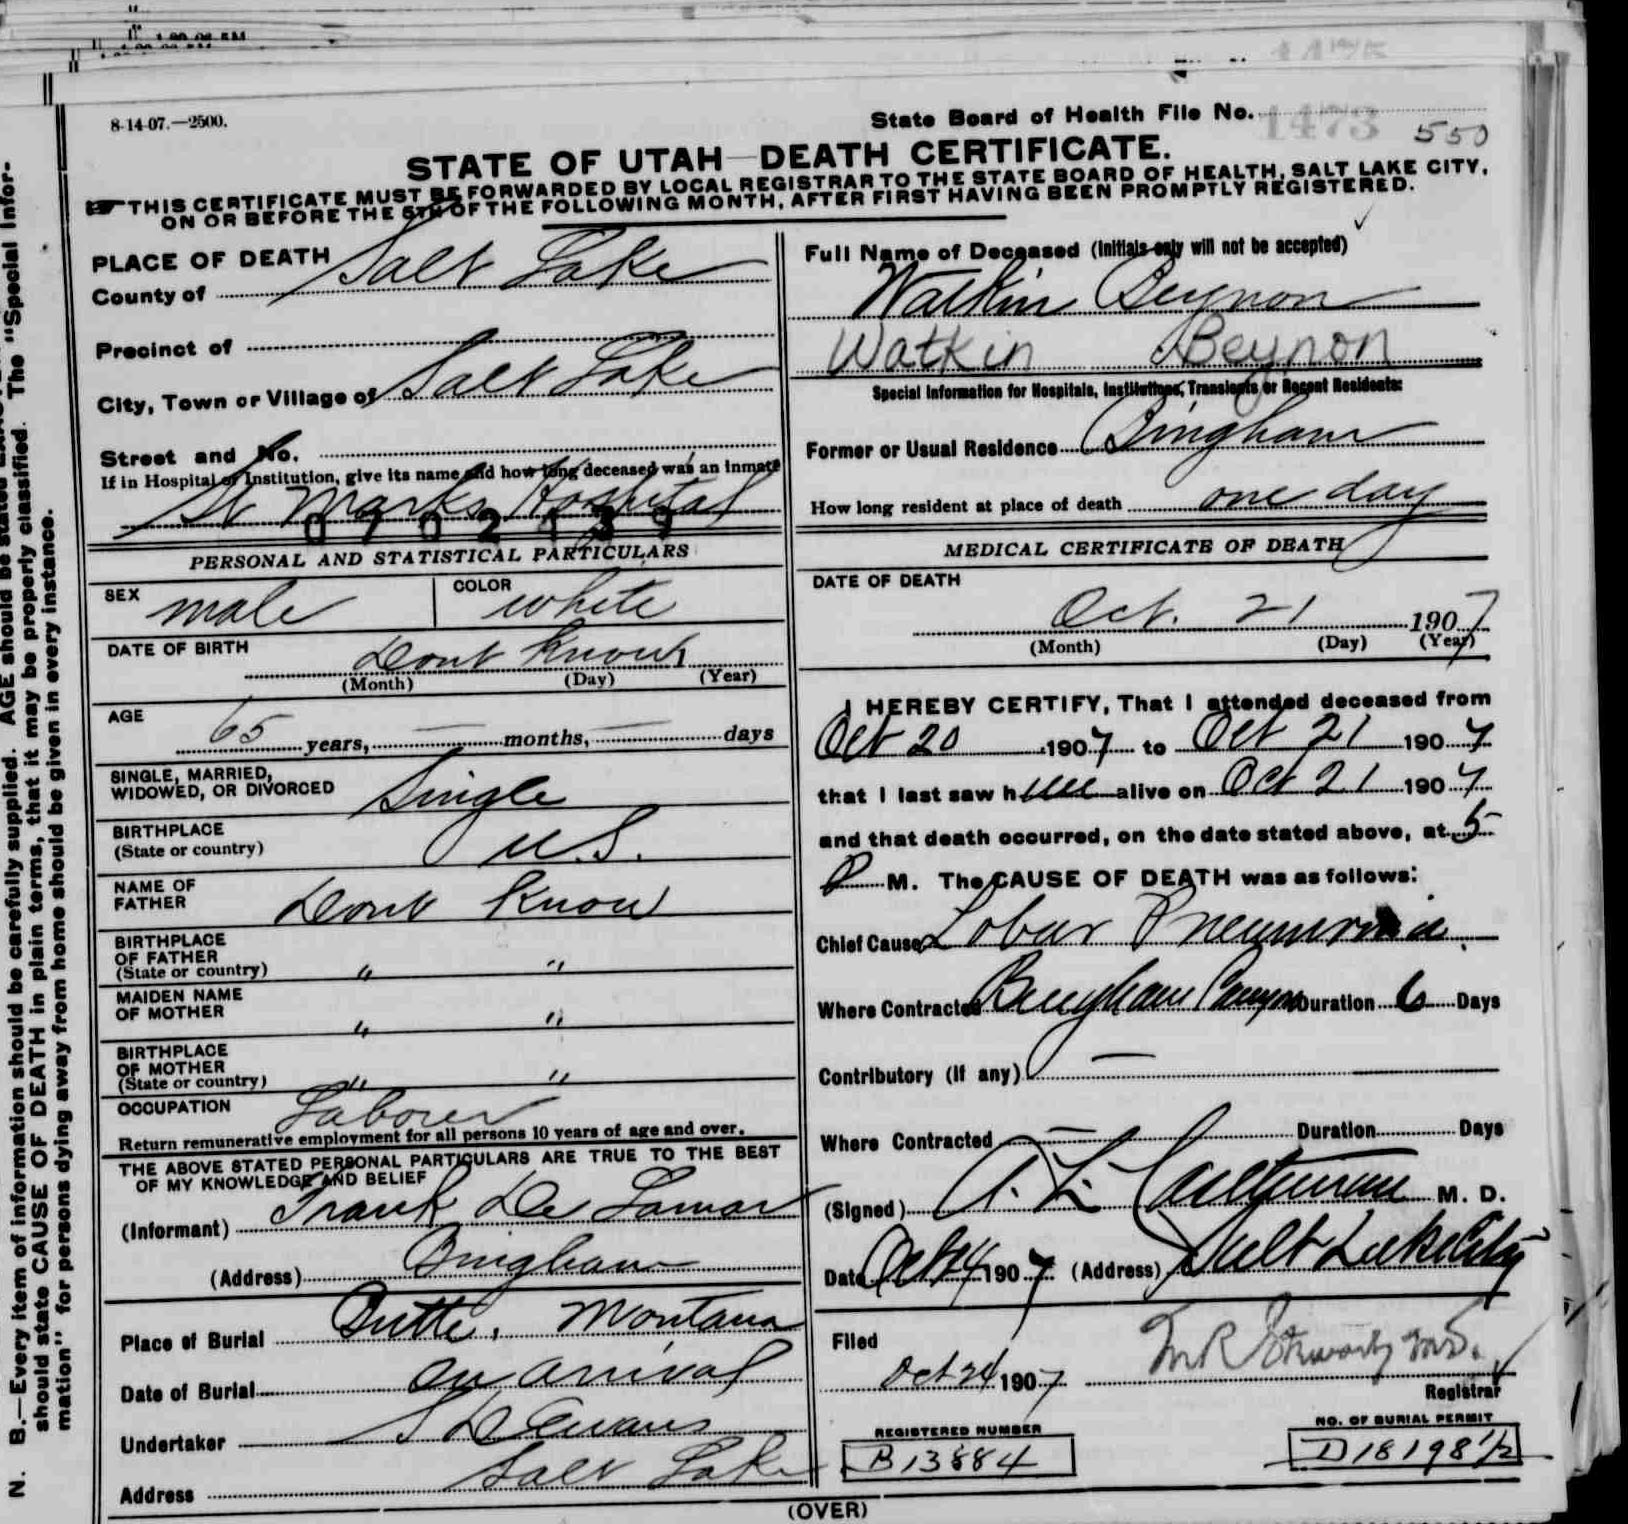 8-14-07.—2500.
State Board of Health File No. 1473
550
STATE OF UTAH—DEATH CERTIFICATE.
THIS CERTIFICATE MUST BE FORWARDED BY LOCAL REGISTRAR TO THE STATE BOARD OF HEALTH, SALT LAKE CITY,
ON OR BEFORE THE 5TH OF THE FOLLOWING MONTH, AFTER FIRST HAVING BEEN PROMPTLY REGISTERED.
PLACE OF DEATH
County of Salt Lake
Precinct of
City, Town or Village of Salt Lake
Street and No.
If in Hospital or Institution, give its name and how long deceased was an inmate
St Marks Hospital
0702139
PERSONAL AND STATISTICAL PARTICULARS
SEX male COLOR white
DATE OF BIRTH Dont Know
(Month) (Day) (Year)
AGE 65 years, — months, — days
SINGLE, MARRIED,
WIDOWED, OR DIVORCED Single
BIRTHPLACE
(State or country) U.S.
NAME OF
FATHER Dont Know
BIRTHPLACE
OF FATHER
(State or country) " "
MAIDEN NAME
OF MOTHER " "
BIRTHPLACE
OF MOTHER
(State or country) " "
OCCUPATION Laborer
Return remunerative employment for all persons 10 years of age and over.
THE ABOVE STATED PERSONAL PARTICULARS ARE TRUE TO THE BEST
OF MY KNOWLEDGE AND BELIEF
(Informant) Frank De Lamar
(Address) Bingham
Place of Burial Butte, Montana
Date of Burial on arrival
Undertaker S D Evans
Address Salt Lake
Full Name of Deceased (Initials only will not be accepted)
Watkin Beynon
Watkin Beynon
Special Information for Hospitals, Institutions, Transients or Recent Residents:
Former or Usual Residence Bingham
How long resident at place of death one day
MEDICAL CERTIFICATE OF DEATH
DATE OF DEATH
Oct. 21 1907
(Month) (Day) (Year)
I HEREBY CERTIFY, That I attended deceased from
Oct 20 1907 to Oct 21 1907
that I last saw him alive on Oct 21 1907
and that death occurred, on the date stated above, at 5
P M. The CAUSE OF DEATH was as follows:
Chief Cause Lobar Pneumonia.
Where Contracted Bingham Canyon Duration 6 Days
Contributory (if any) —
Where Contracted — Duration Days
(Signed) A. L. M. D.
Date Oct 1907 (Address) Salt Lake City
Filed
Oct 24 1907 M R Stewart M.D.
Registrar
REGISTERED NUMBER
B 13884
NO. OF BURIAL PERMIT
D 18198 1/2
(OVER)
N. B.—Every item of information should be carefully supplied. AGE should be stated
should state CAUSE OF DEATH in plain terms, that it may be properly classified. The "Special Infor-
mation" for persons dying away from home should be given in every instance.